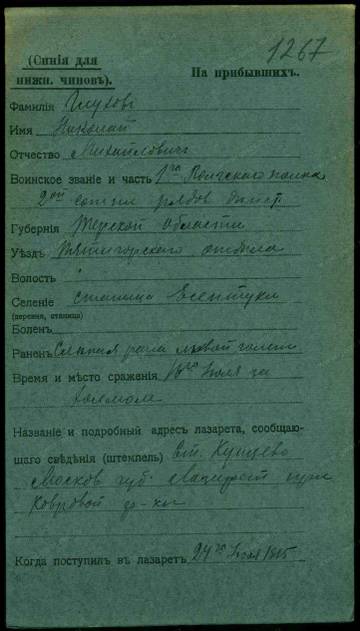 1267
(Синія для
нижн. чиновъ).
На прибывшихъ.
Фамилія Глуховъ
Имя Николай
Отчество Михайловичъ
Воинское званіе и часть 1го полка
2ой сотни
Губернія Терской области
Уѣздъ Пятигорскаго отдѣла
Волость
Селеніе станица Есентуки
(деревня, станица)
Боленъ
Раненъ рана лѣвой голени
Время и мѣсто сраженія 16го Іюля за
Названіе и подробный адресъ лазарета, сообщаю-
щаго свѣдѣнія (штемпель) ст. Кунцево
Москов. губ. Лазаретъ при
Ковровой ф-кѣ
Когда поступилъ въ лазаретъ 24го Іюля 1915